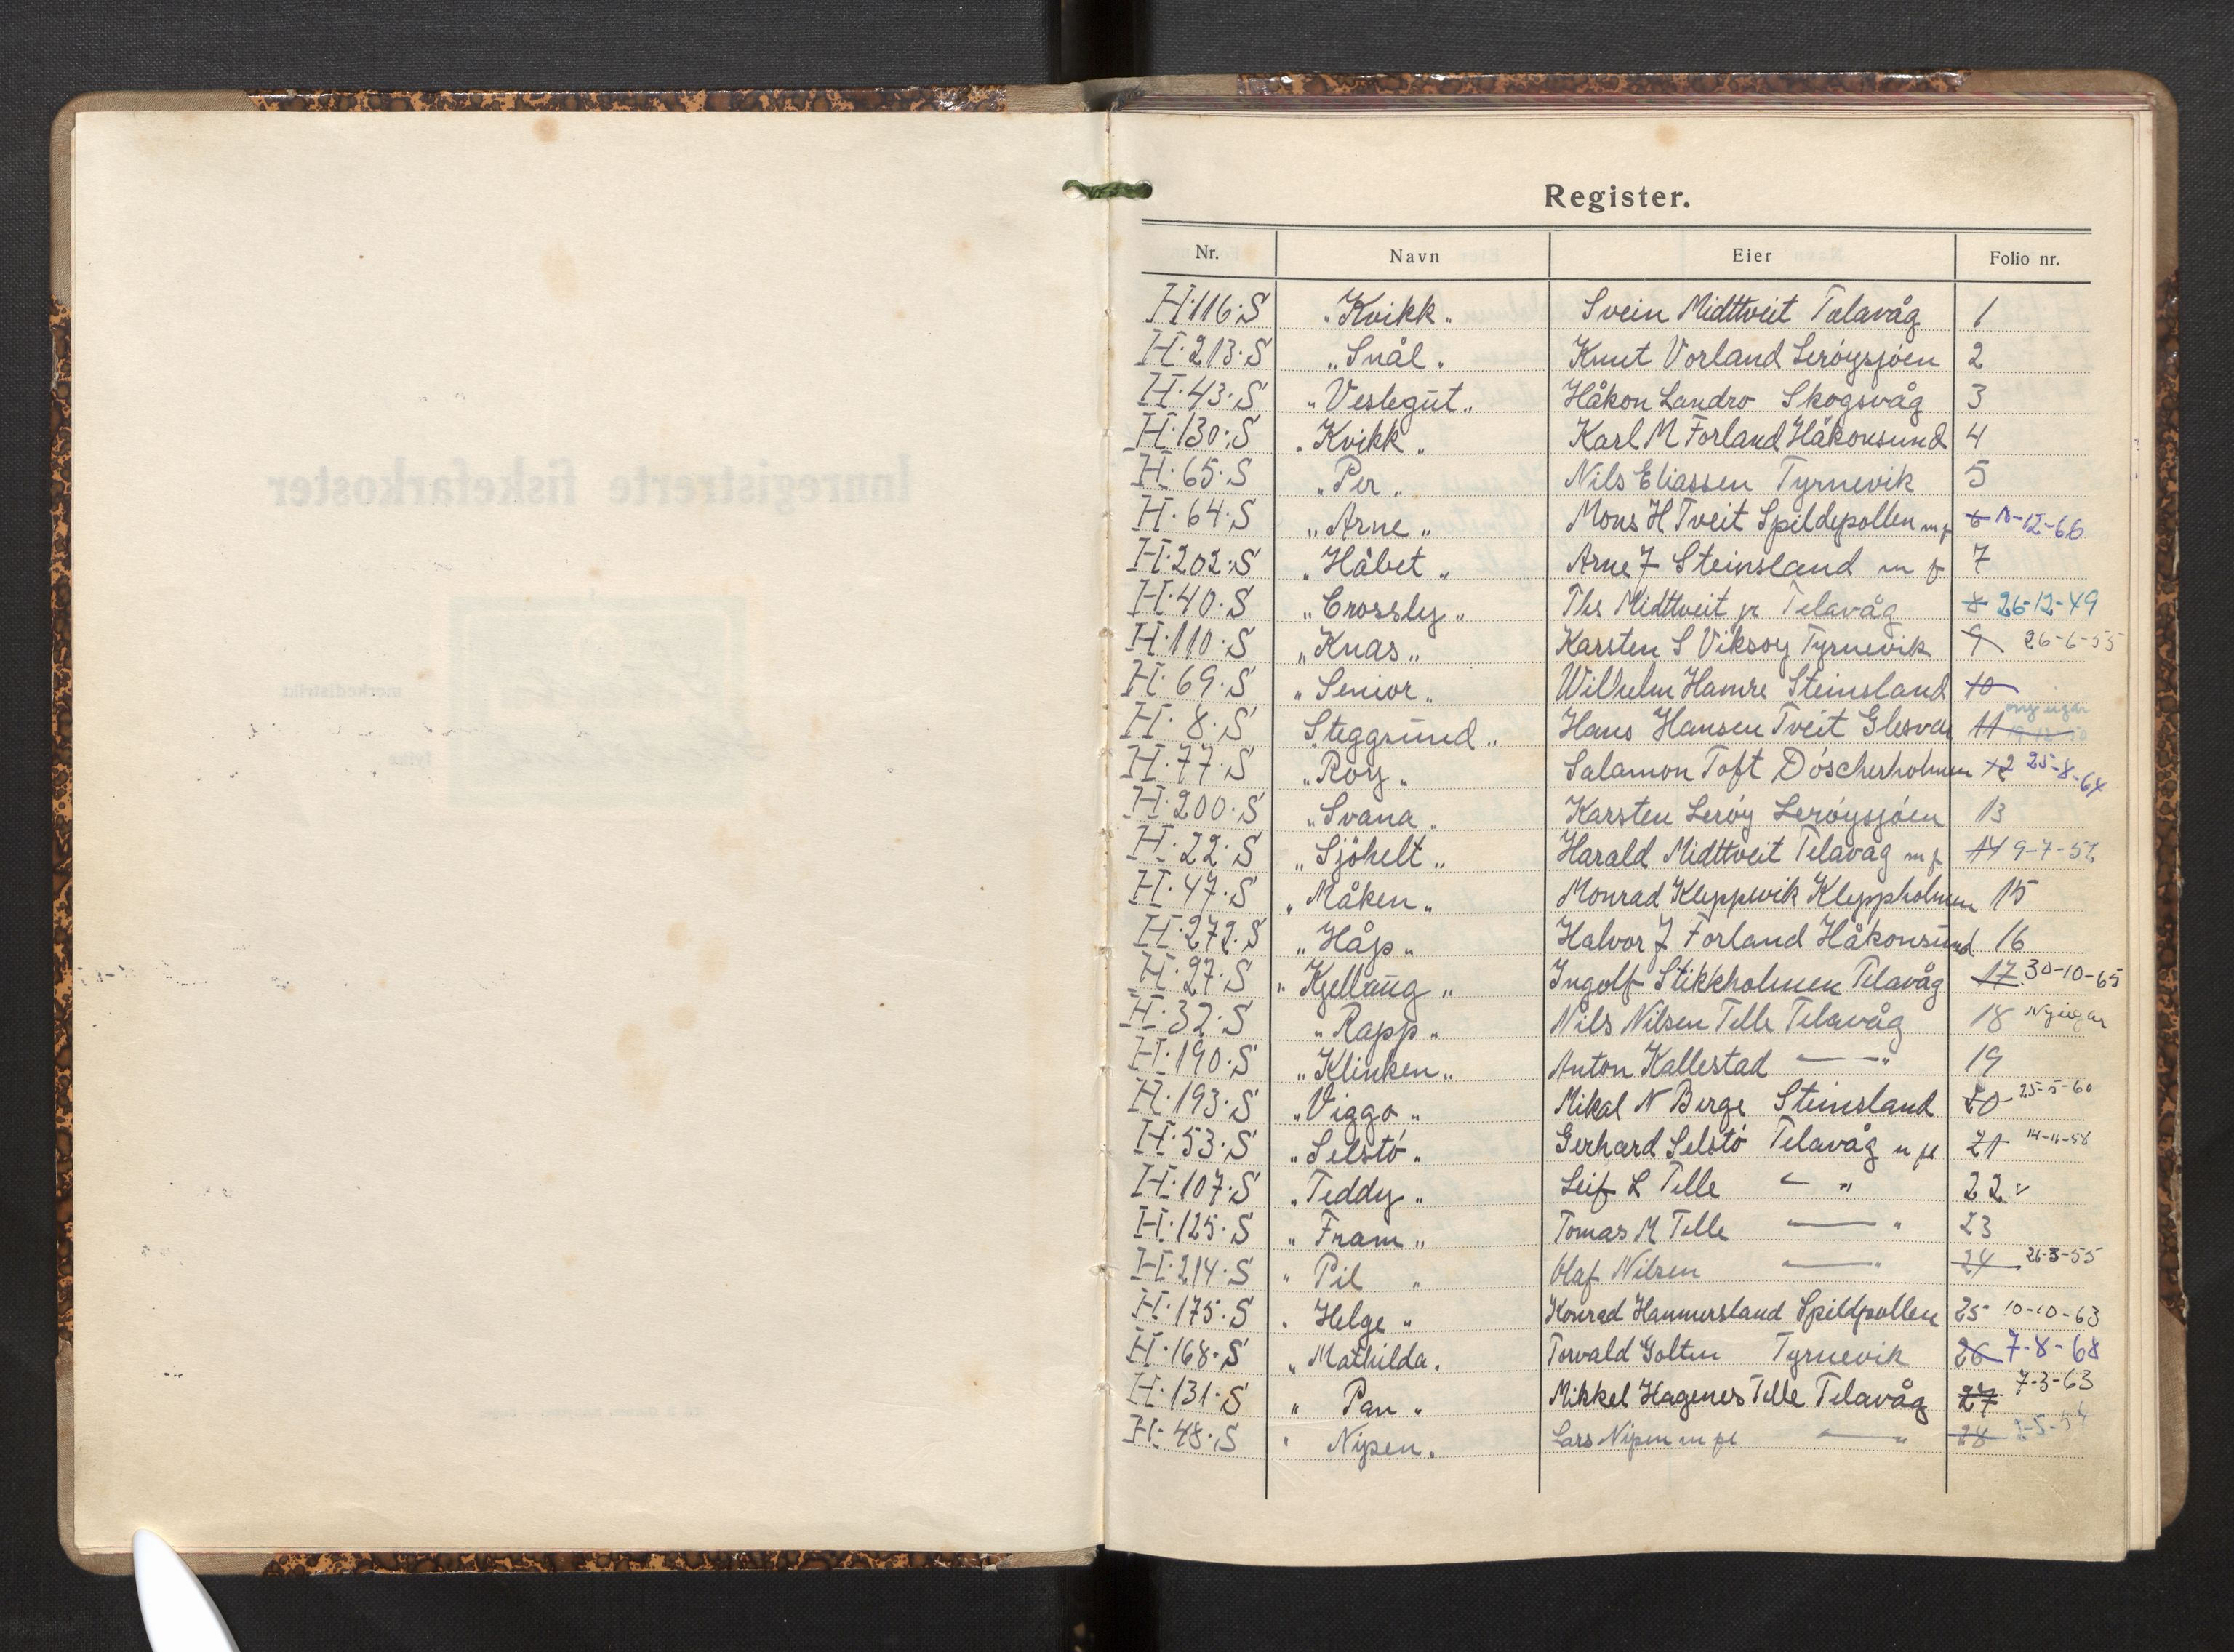 Register.
Nr. Navn Eier Folio nr.
H·116·S „Kvikk„ Svein Midttveit Telavåg 1
H·213·S „Snål„ Knut Vorland Lerøysjøen 2
H·43·S „Veslegut„ Håkon Landro Skogsvåg 3
H·130·S „Kvikk„ Karl M Forland Håkonsund 4
H·65·S „Per„ Nils Eliassen Tyrnevik 5
H·64·S „Arne„ Mons H Tveit Spildepollen m f 6 10-12-66
H·202·S „Håbet„ Arne J Steinsland m f 7
H·40·S „Crossley„ Ths Midttveit jr Telavåg 8 26-12-49
H·110·S „Knas„ Karsten S Viksøy Tyrnevik 9 26-6-55
H·69·S „Senior„ Wilhelm Hamre Steinsland 10
H·8·S Steggsund„ Hans Hansen Tveit Glesvær 11 ny eigar
H·77·S „Roy„ Salamon Toft Döscherholmen 12 25-8-64
H·200·S „Svana„ Karsten Lerøy Lerøysjøen 13
H·22·S „Sjöhelt„ Harald Midttveit Telavåg m f 14 9-7-52
H·47·S „Måken„ Monrad Kleppevik Kleppholmen 15
H·272·S „Håp„ Halvor J Forland Håkonsund 16
H·27·S „Kjellaug„ Ingolf Stikkholmen Telavåg 17 30-10-65
H·32·S „Rapp„ Nils Nilsen Telle Telavåg 18 Ny eigar
H·190·S „Klinken„ Anton Kallestad —„— 19
H·193·S „Viggo„ Mikal N Berge Steinsland 20 25-5-60
H·53·S „Selstö„ Gerhard Selstö Telavåg m fl 21 14-11-58
H·107·S „Teddy„ Leif L Telle —„ 22 v
H·125·S „Fram„ Tomas M Telle —„ 23
H·214·S „Pil„ Olaf Nilsen —„ 24 26-3-55
H·175·S „Helge„ Konrad Hammersland Spildpollen 25 10-10-63
H·168·S „Mathilda„ Torvald Golten Tyrnevik 26 7-8-68
H·131·S „Pan„ Mikkel Hagenes Telle Telavåg 27 7-3-63
H·48·S „Nipen„ Lars Nipen m fl —„ 28